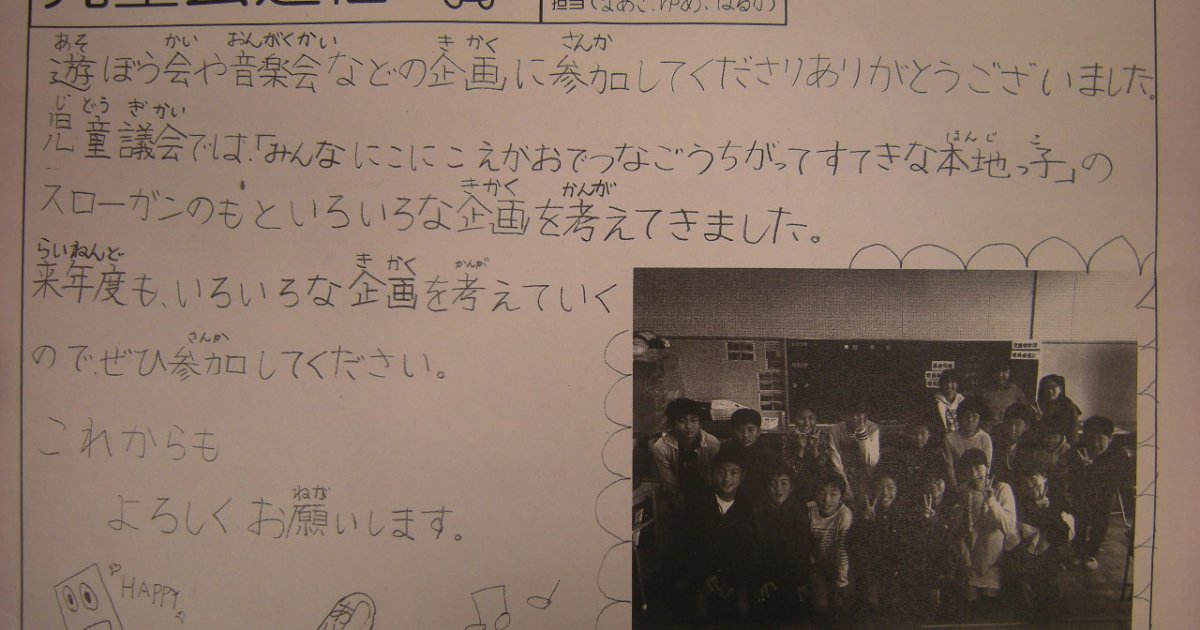 担当(なあこ、ゆめ、はるか)
遊ぼう会や音楽会などの企画に参加してくださりありがとうございました。
児童議会では、「みんなにこにこえがおでつなごうちがってすてきな本地っ子」の
スローガンのもといろいろな企画を考えてきました。
来年度も、いろいろな企画を考えていく
ので、ぜひ参加してください。
これからも
よろしくお願いします。
HAPPY